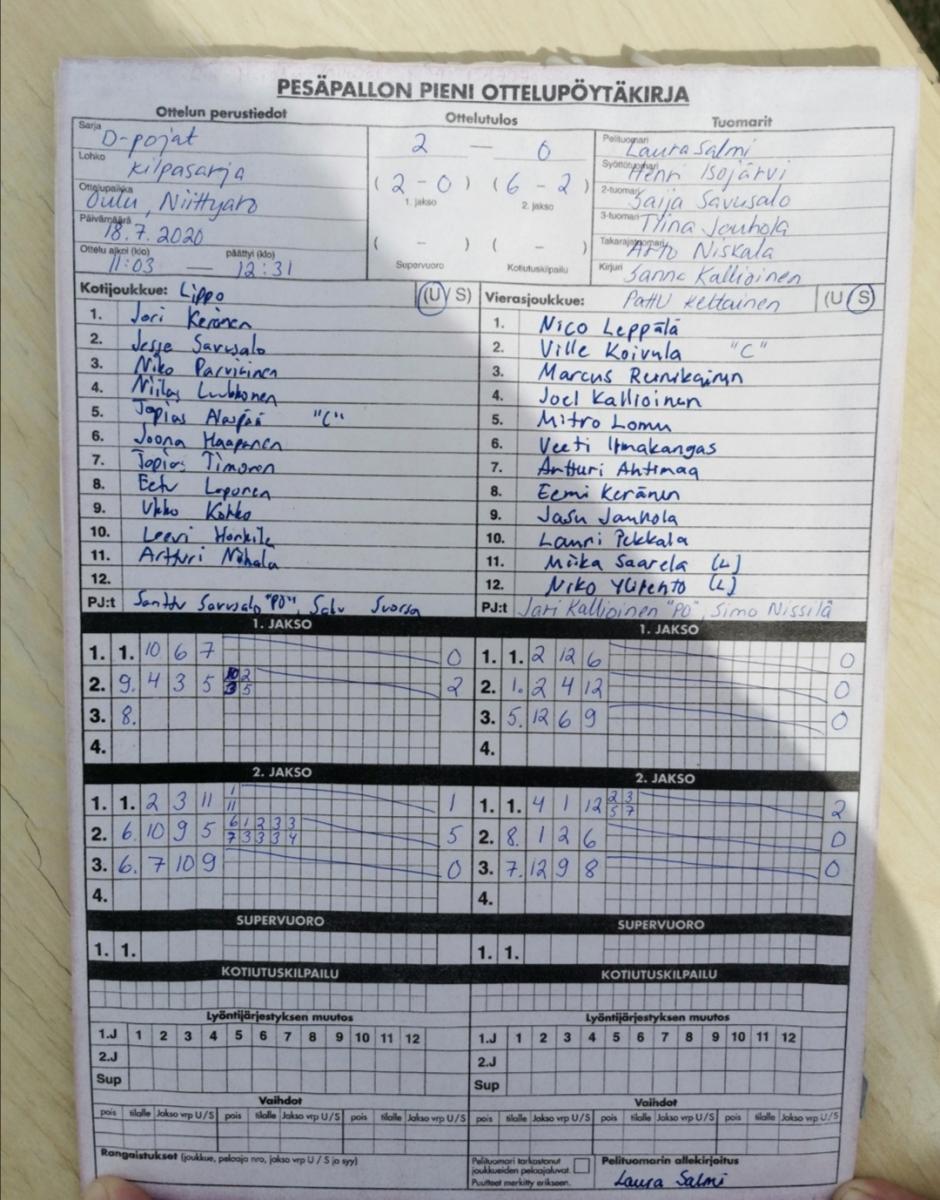 PESÄPALLON PIENI OTTELUPÖYTÄKIRJA
Ottelun perustiedot
Sarja D-pojat
Lohko Kilpasarja
Ottelupaikka Oulu, Niittyaro
Päivämäärä 18.7.2020
Ottelu alkoi (klo) päättyi (klo)
11:03 — 12:31
Ottelutulos
2 — 0
(2 - 0) (6 - 2)
1. jakso 2. jakso
( - ) ( - )
Supervuoro Kotiutuskilpailu
Tuomarit
Pelituomari Laura Salmi
Syöttötuomari Henri Isojärvi
2-tuomari Saija Savusalo
3-tuomari Tiina Jauhola
Takarajatuomari Arto Niskala
Kirjuri Sanna Kallioinen
Kotijoukkue: Lippo (U/S)
1. Jori Keränen
2. Jesse Savusalo
3. Niko Parviainen
4. Niilas Luukkonen
5. Topias Alaspää "C"
6. Joona Haapanen
7. Topias Timonen
8. Eetu Leponen
9. Ukko Kokko
10. Leevi
11. Artturi
12.
PJ:t Santtu Savusalo "PO", Suorsa
Vierasjoukkue: PattU keltainen (U/S)
1. Nico Leppälä
2. Ville Koivula "C"
3. Marcus
4. Joel Kallioinen
5. Mitro Lomu
6. Veeti Ilmakangas
7. Artturi Ahtimaa
8. Eemi Keränen
9. Jasu Jauhola
10. Lauri Pekkala
11. Miika Saarela (L)
12. Niko Ylipehto (L)
PJ:t Jari Kallioinen "PO", Simo Nissilä
1. JAKSO
1. 1. 10 6 7 0
2. 9. 4 3 5 2
2
5
3. 8.
4.
1. JAKSO
1. 1. 2 12 6 0
2. 1. 2 4 12 0
3. 5. 12 6 9 0
4.
2. JAKSO
1. 1. 2 3 11 1
1
11
2. 6. 10 9 5 5
6 1 2 3 3
7 3 3 3 4
3. 6. 7 10 9 0
4.
2. JAKSO
1. 1. 4 1 12 2
2 3
5 7
2. 8. 1 2 6 0
3. 7. 12 9 8 0
4.
SUPERVUORO
1. 1.
SUPERVUORO
1. 1.
KOTIUTUSKILPAILU
KOTIUTUSKILPAILU
Lyöntijärjestyksen muutos
1.J 1 2 3 4 5 6 7 8 9 10 11 12
2.J
Sup
Lyöntijärjestyksen muutos
1.J 1 2 3 4 5 6 7 8 9 10 11 12
2.J
Sup
Vaihdot
pois tilalle Jakso vrp U/S pois tilalle Jakso vrp U/S pois tilalle Jakso vrp U/S
Vaihdot
pois tilalle Jakso vrp U/S pois tilalle Jakso vrp U/S pois tilalle Jakso vrp U/S
Rangaistukset (joukkue, pelaaja nro, jakso vrp U / S ja syy)
Pelituomari tarkastanut
joukkueiden pelaajaluvat.
Puutteet merkitty erikseen.
Pelituomarin allekirjoitus
Laura Salmi